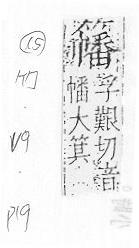 (15)
籓 孚艱切音
幡大箕
V9
P19